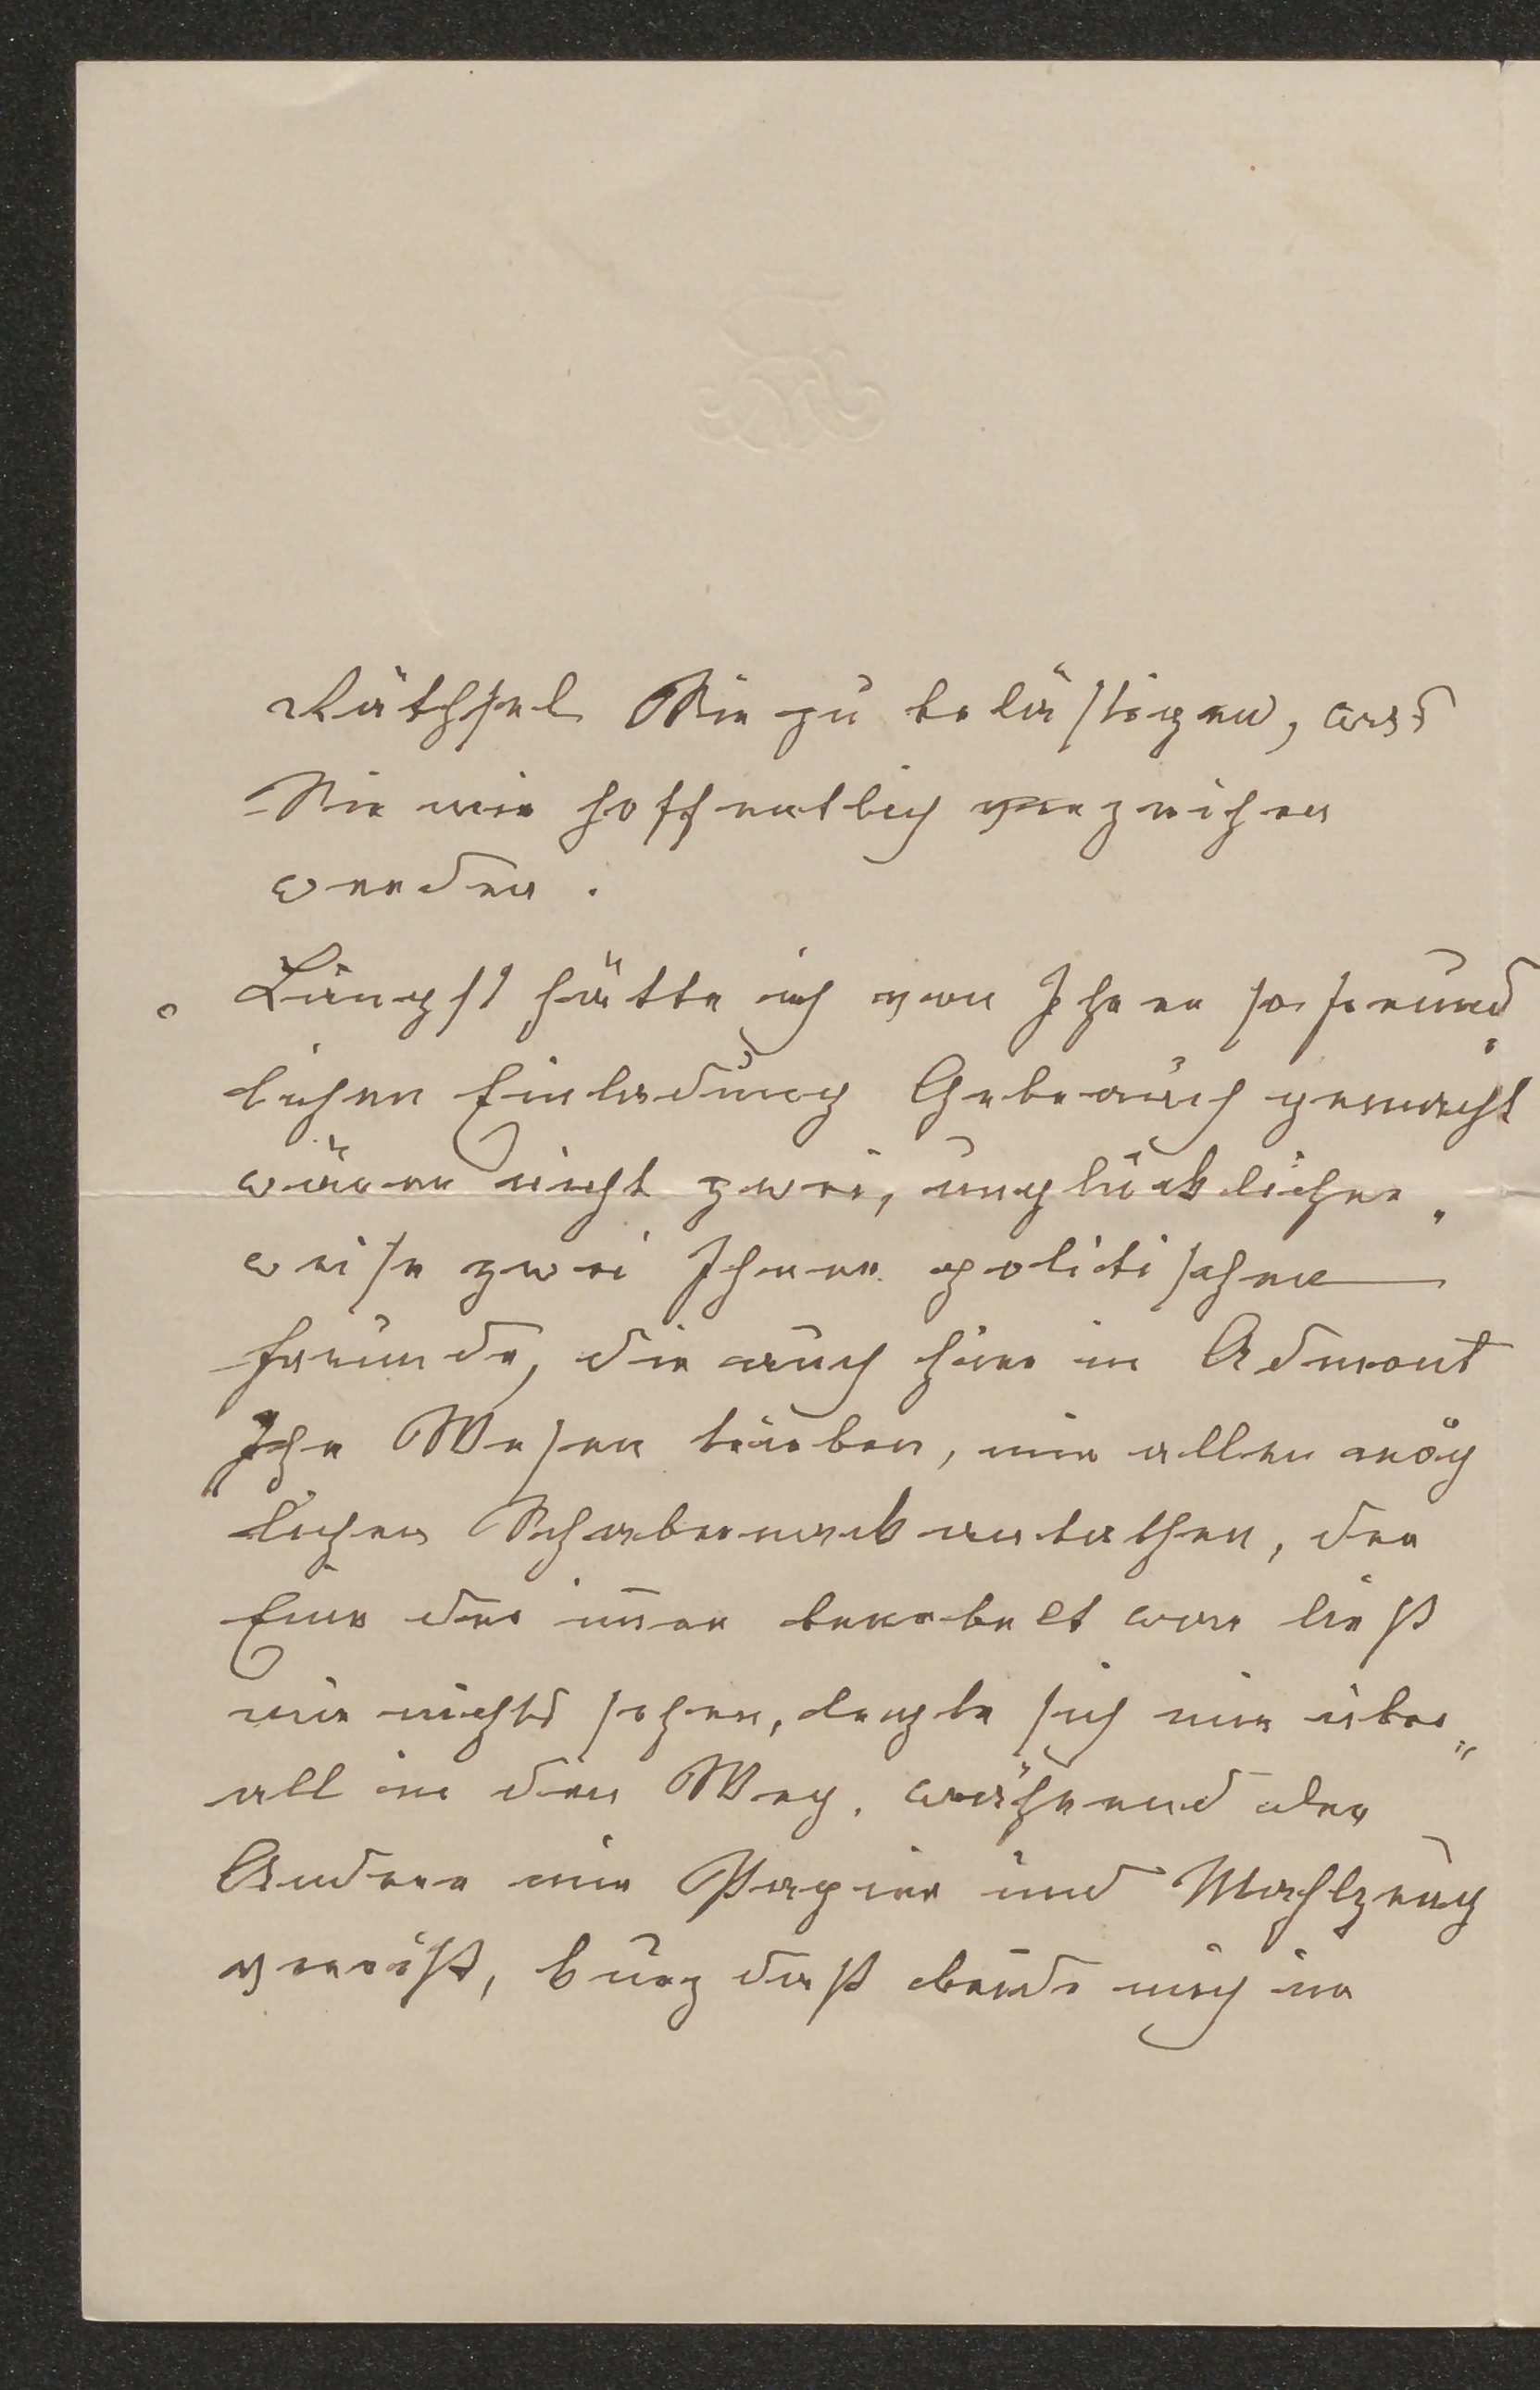 Räthsel Sie zu belästigen, was
Sie mir hoffentlich verzeihen
werden.
Längst hätte ich von Ihrer so freund„
lichen Einladung Gebrauch gemacht
wären nicht zwei, unglücklicher„
weise zwei Ihrer politischen
Freunde, die auch hier in Admont
Ihr Wesen treiben, mir allen mög
„lichen Schabernack anthaten, der
Eine der immer benebelt war ließ
mir nichts sehen, legte sich mir über„
all in den Weg, während der
Andere mir Papier und Mahlzeug
verriß, kurz daß beide mich in